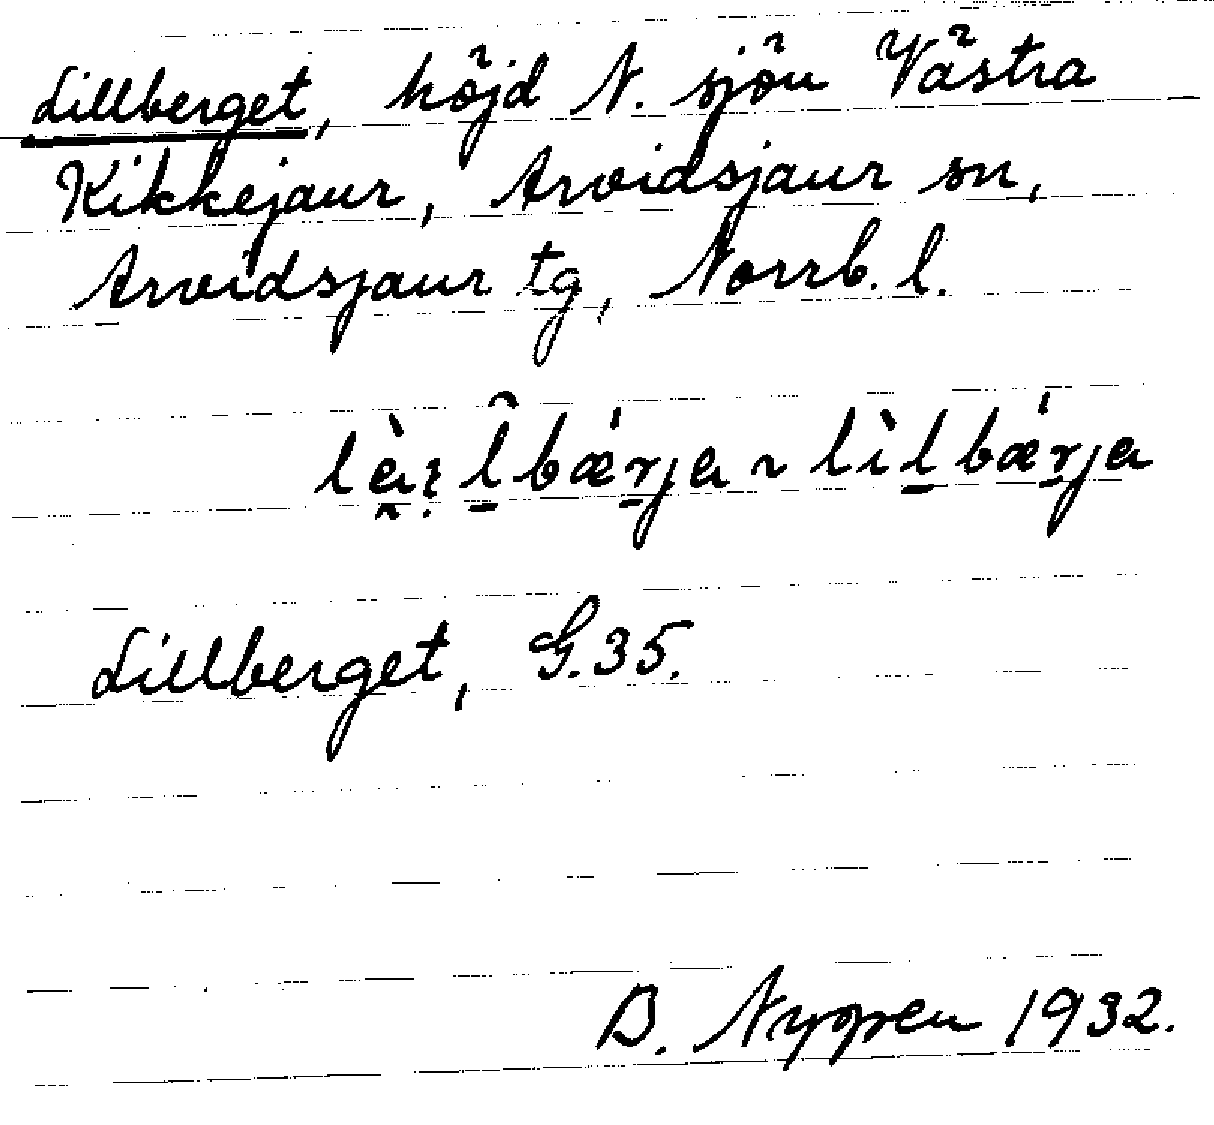 Lillberget, höjd N. sjön Västra
Kikkejaur, Arvidsjaur sn,
Arvidsjaur tg, Norrb. l.
lìlbǽrja
Lillberget, G.35.
B. Nyypen 1932.